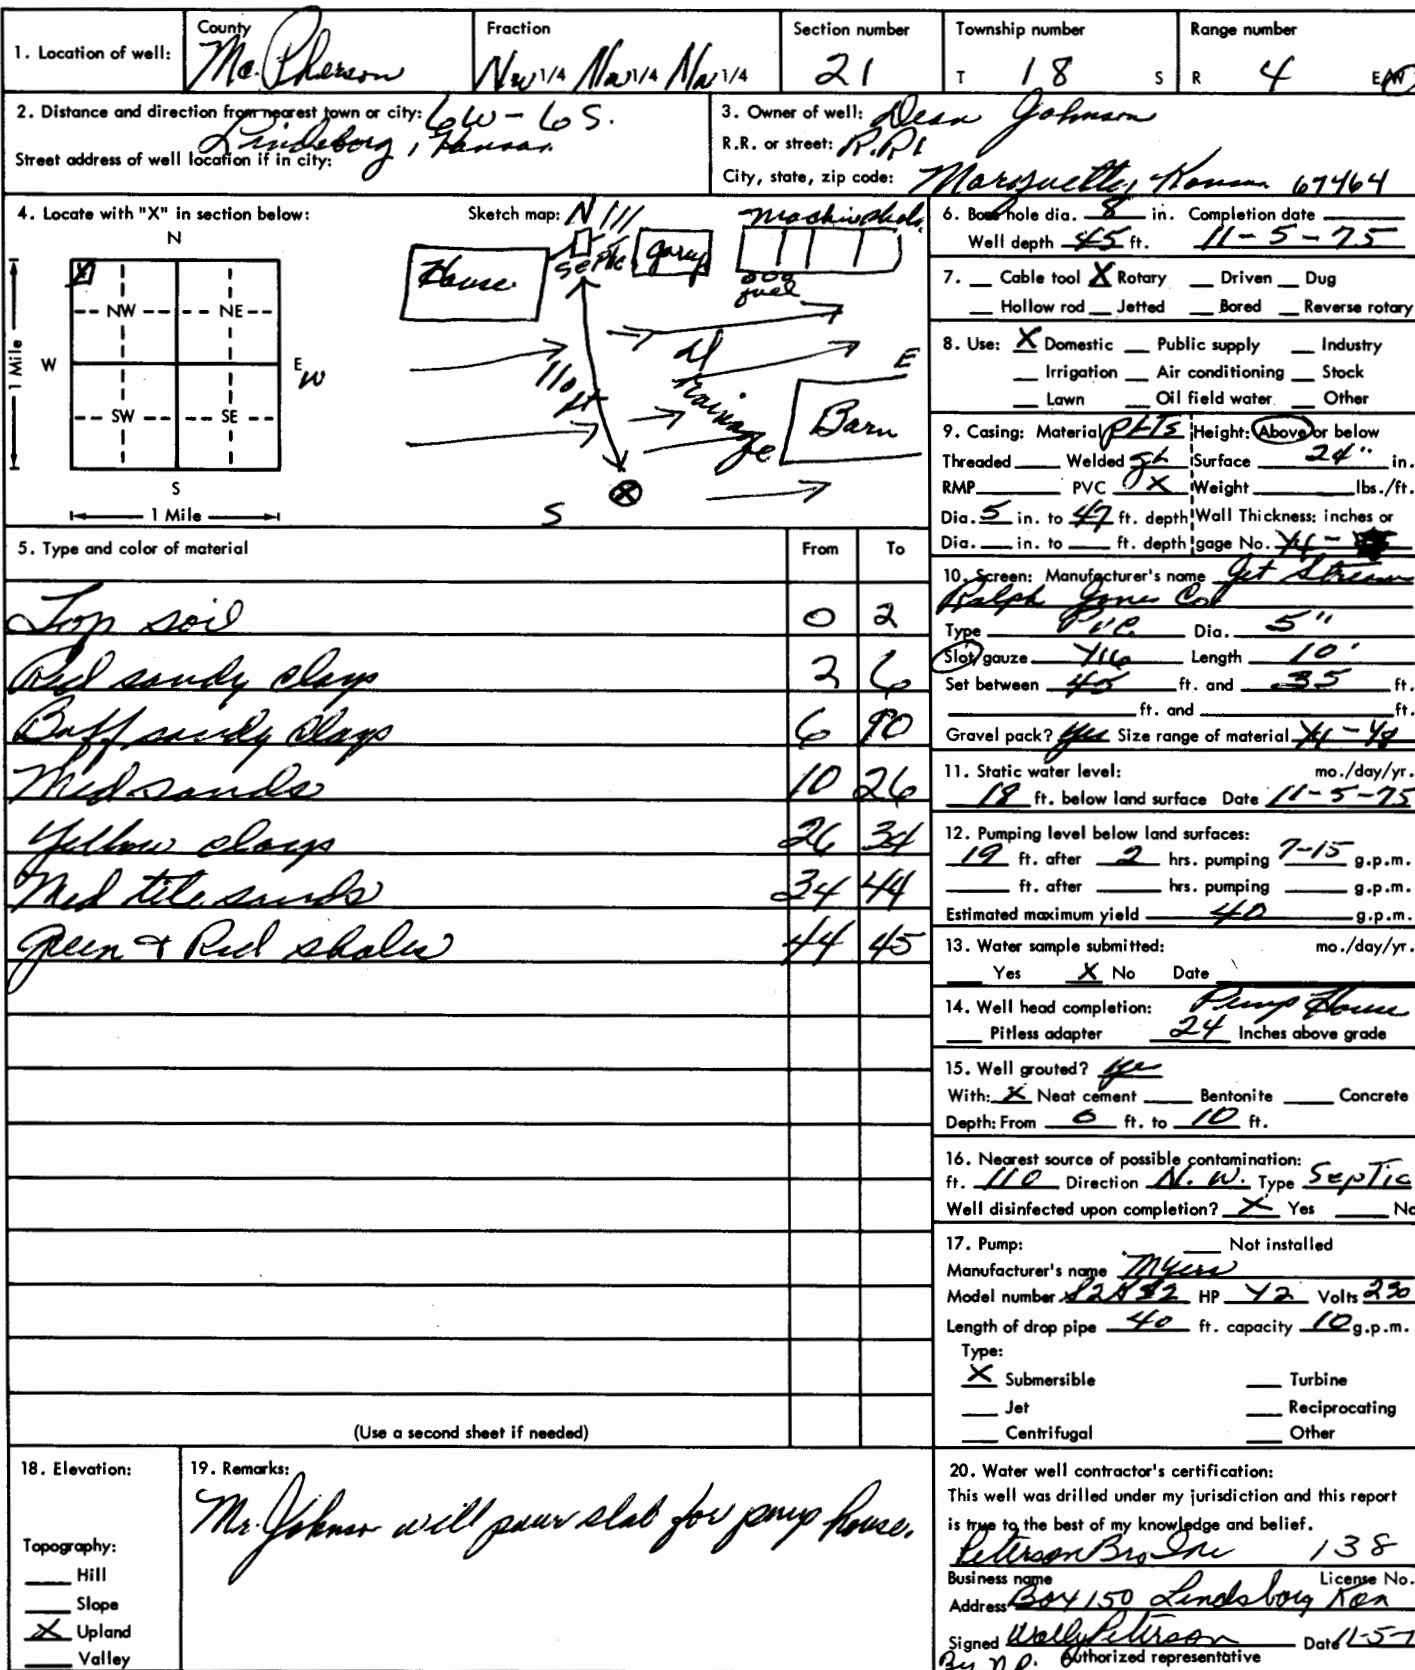 1. Location of well: County Mc.Pherson Fraction Nw 1/4 Nw 1/4 Nw 1/4 Section number 21 Township number T 18 S Range number R 4 E/W
2. Distance and direction from nearest town or city: 6W - 6 S.
Lindsborg, Kansas
Street address of well location if in city:
3. Owner of well: Dean Johnson
R.R. or street: R.R1
City, state, zip code: Marquette, Kansas 67464
4. Locate with "X" in section below:
N
X
NW NE
W E
SW SE
S
1 Mile
1 Mile
Sketch map: N
House Septic garage machine sheds
500 fuel
110 ft
drainage
W E
Barn
S
5. Type and color of material From To
Top soil 0 2
Red sandy clays 2 6
Buff sandy clays 6 10
Med sands 10 26
Yellow clays 26 34
Med tite sands 34 44
Green & Red shales 44 45
(Use a second sheet if needed)
6. Bore hole dia. 8 in. Completion date
Well depth 45 ft. 11-5-75
7. Cable tool X Rotary Driven Dug
Hollow rod Jetted Bored Reverse rotary
8. Use: X Domestic Public supply Industry
Irrigation Air conditioning Stock
Lawn Oil field water Other
9. Casing: Material Height: Above or below
Threaded Welded Surface 24" in.
RMP PVC X Weight lbs./ft.
Dia. 5 in. to 47 ft. depth Wall Thickness: inches or
Dia. in. to ft. depth gage No. 1/4 -
10. Screen: Manufacturer's name Jet Stream
Ralph Jones Co
Type PVC Dia. 5"
Slot/gauze 1/16 Length 10'
Set between 45 ft. and 35 ft.
ft. and ft.
Gravel pack? Yes Size range of material 1/4 - 1/8
11. Static water level: mo./day/yr.
18 ft. below land surface Date 11-5-75
12. Pumping level below land surfaces:
19 ft. after 2 hrs. pumping 7-15 g.p.m.
ft. after hrs. pumping g.p.m.
Estimated maximum yield 40 g.p.m.
13. Water sample submitted: mo./day/yr.
Yes X No Date
14. Well head completion: Pump House
Pitless adapter 24 Inches above grade
15. Well grouted? Yes
With: X Neat cement Bentonite Concrete
Depth: From 0 ft. to 10 ft.
16. Nearest source of possible contamination:
ft. 110 Direction N.W. Type Septic
Well disinfected upon completion? X Yes No
17. Pump: Not installed
Manufacturer's name Myers
Model number HP 1/2 Volts 230
Length of drop pipe 40 ft. capacity 10 g.p.m.
Type:
X Submersible Turbine
Jet Reciprocating
Centrifugal Other
18. Elevation:
Topography:
Hill
Slope
X Upland
Valley
19. Remarks:
Mr. Johnson will pour slab for pump house.
20. Water well contractor's certification:
This well was drilled under my jurisdiction and this report
is true to the best of my knowledge and belief.
Peterson Bro Inc 138
Business name License No.
Address Box 150 Lindsborg Kan
Signed Wally Peterson Date 11-5-7
By N.P. Authorized representative